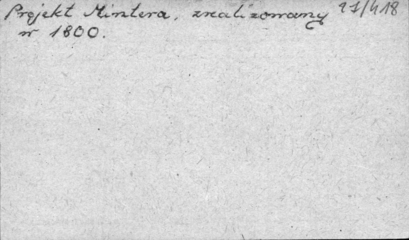 Projekt Mintera, zrealizowany 27/418
w 1800.